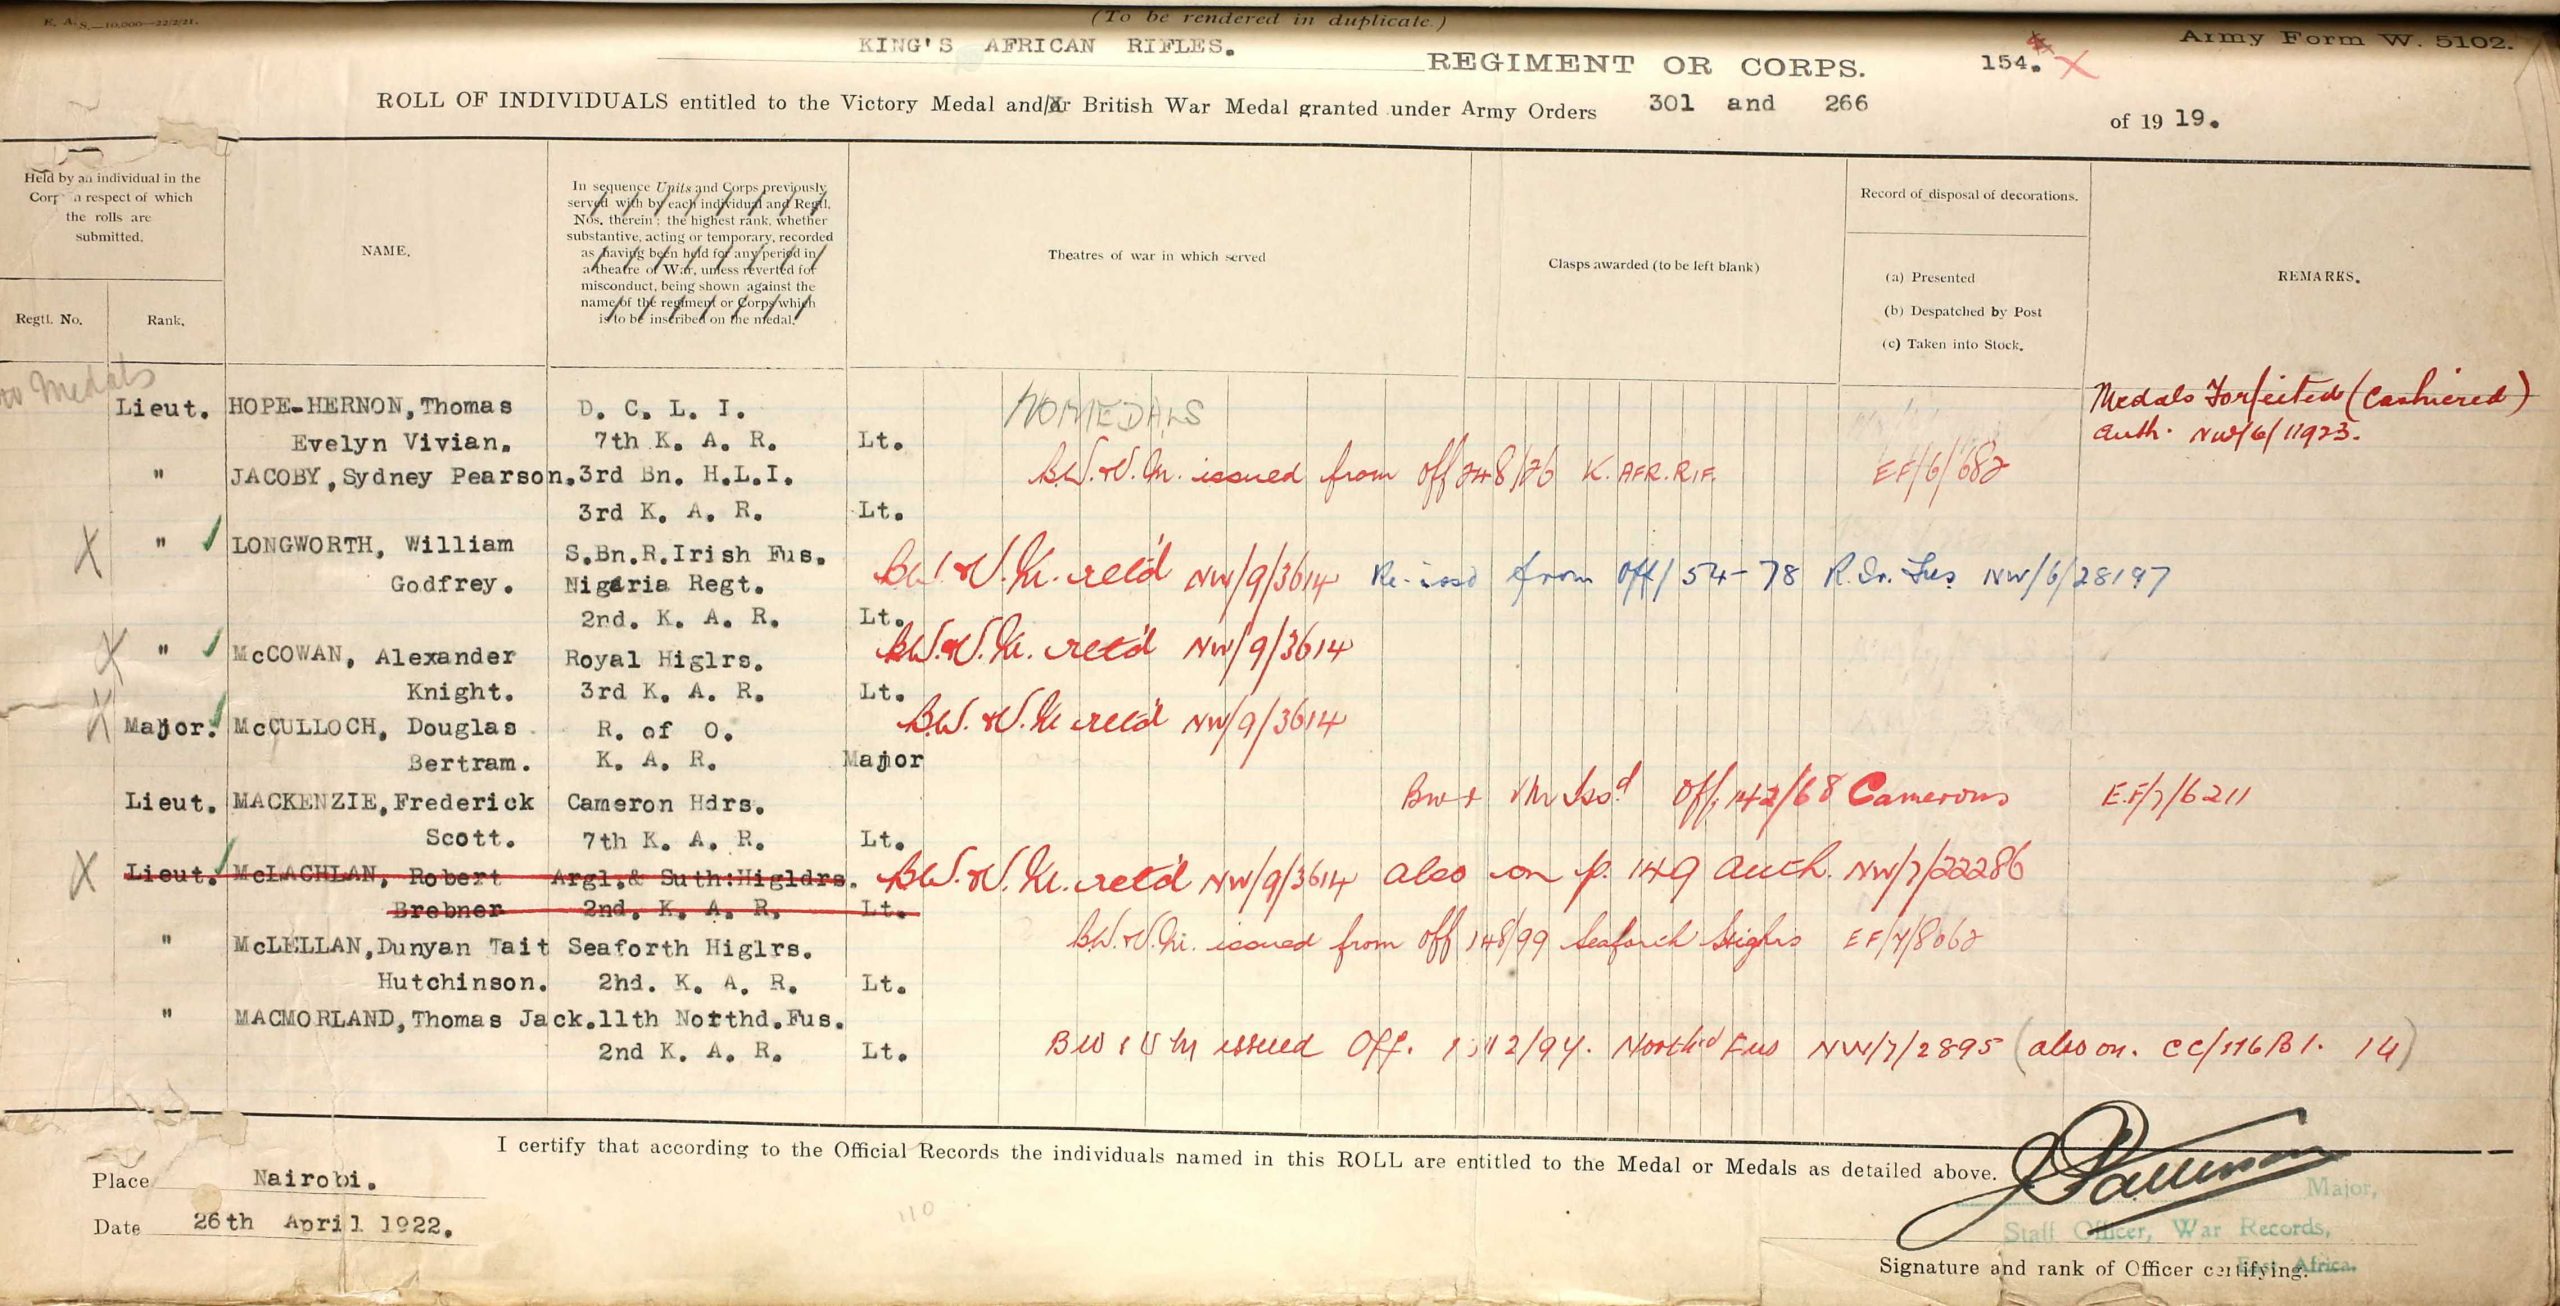 E. A. S.—10,000—22/2/21.
(To be rendered in duplicate.)
KING'S AFRICAN RIFLES.
REGIMENT OR CORPS.
154.
Army Form W. 5102.
ROLL OF INDIVIDUALS entitled to the Victory Medal and/or British War Medal granted under Army Orders 301 and 266 of 19 19.
Held by an individual in the
Corps in respect of which
the rolls are
submitted.
Regtl. No.
Rank.
NAME.
In sequence Units and Corps previously
served with by each individual and Regtl.
Nos. therein; the highest rank, whether
substantive, acting or temporary, recorded
as having been held for any period in
a theatre of War, unless reverted for
misconduct, being shown against the
name of the regiment or Corps which
is to be inscribed on the medal.
Theatres of war in which served
Clasps awarded (to be left blank)
Record of disposal of decorations.
(a) Presented
(b) Despatched by Post
(c) Taken into Stock.
REMARKS.
no Medals
Lieut. HOPE-HERNON, Thomas D. C. L. I. NO MEDALS Medals Forfeited (Cashiered)
Evelyn Vivian. 7th K. A. R. Lt. Auth. NW/6/11923.
" JACOBY, Sydney Pearson. 3rd Bn. H.L.I. B.W.&V.M. issued from Off 248/26 K. AFR. RIF. EF/6/682
3rd K. A. R. Lt.
X " LONGWORTH, William S.Bn.R.Irish Fus. BW.&V.M. retd NW/9/3614 Re-issd from Off/54-78 R. Ir. Fus NW/6/28197
Godfrey. Nigeria Regt.
2nd. K. A. R. Lt.
X " McCOWAN, Alexander Royal Higlrs. BW.&V.M. retd NW/9/3614
Knight. 3rd K. A. R. Lt.
X Major. McCULLOCH, Douglas R. of O. B.W.&V.M retd NW/9/3614
Bertram. K. A. R. Major
Lieut. MACKENZIE, Frederick Cameron Hdrs. BW+ VM Issd Off. 142/68 Camerons E.F/7/6211
Scott. 7th K. A. R. Lt.
X Lieut. McLACHLAN, Robert Argl.& Suth:Higldrs. BW.&V.M. retd NW/9/3614 also on p. 149 auth. NW/7/22286
Brebner 2nd. K. A. R. Lt.
" McLELLAN, Dunyan Tait Seaforth Higlrs. BW.&V.M. issued from Off 148/99 Seaforth Highrs EF/7/8062
Hutchinson. 2nd. K. A. R. Lt.
" MACMORLAND, Thomas Jack. 11th Northd.Fus.
2nd K. A. R. Lt. BW & VM issued Off. Northd Fus NW/7/2895 (also on. CC/116/B1. 14)
I certify that according to the Official Records the individuals named in this ROLL are entitled to the Medal or Medals as detailed above.
Place Nairobi.
Date 26th April 1922.
110
Major,
Staff Officer, War Records,
East Africa.
Signature and rank of Officer certifying.